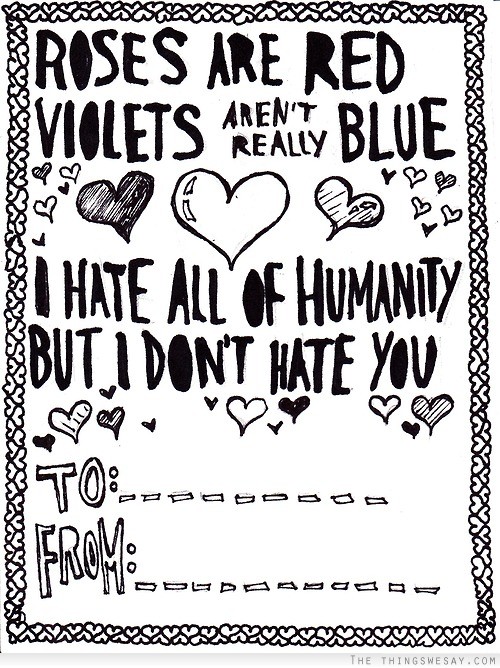 ROSES ARE RED
VIOLETS AREN'T REALLY BLUE
I HATE ALL OF HUMANITY
BUT I DON'T HATE YOU
TO:
FROM:
THE THINGSWESAY.COM